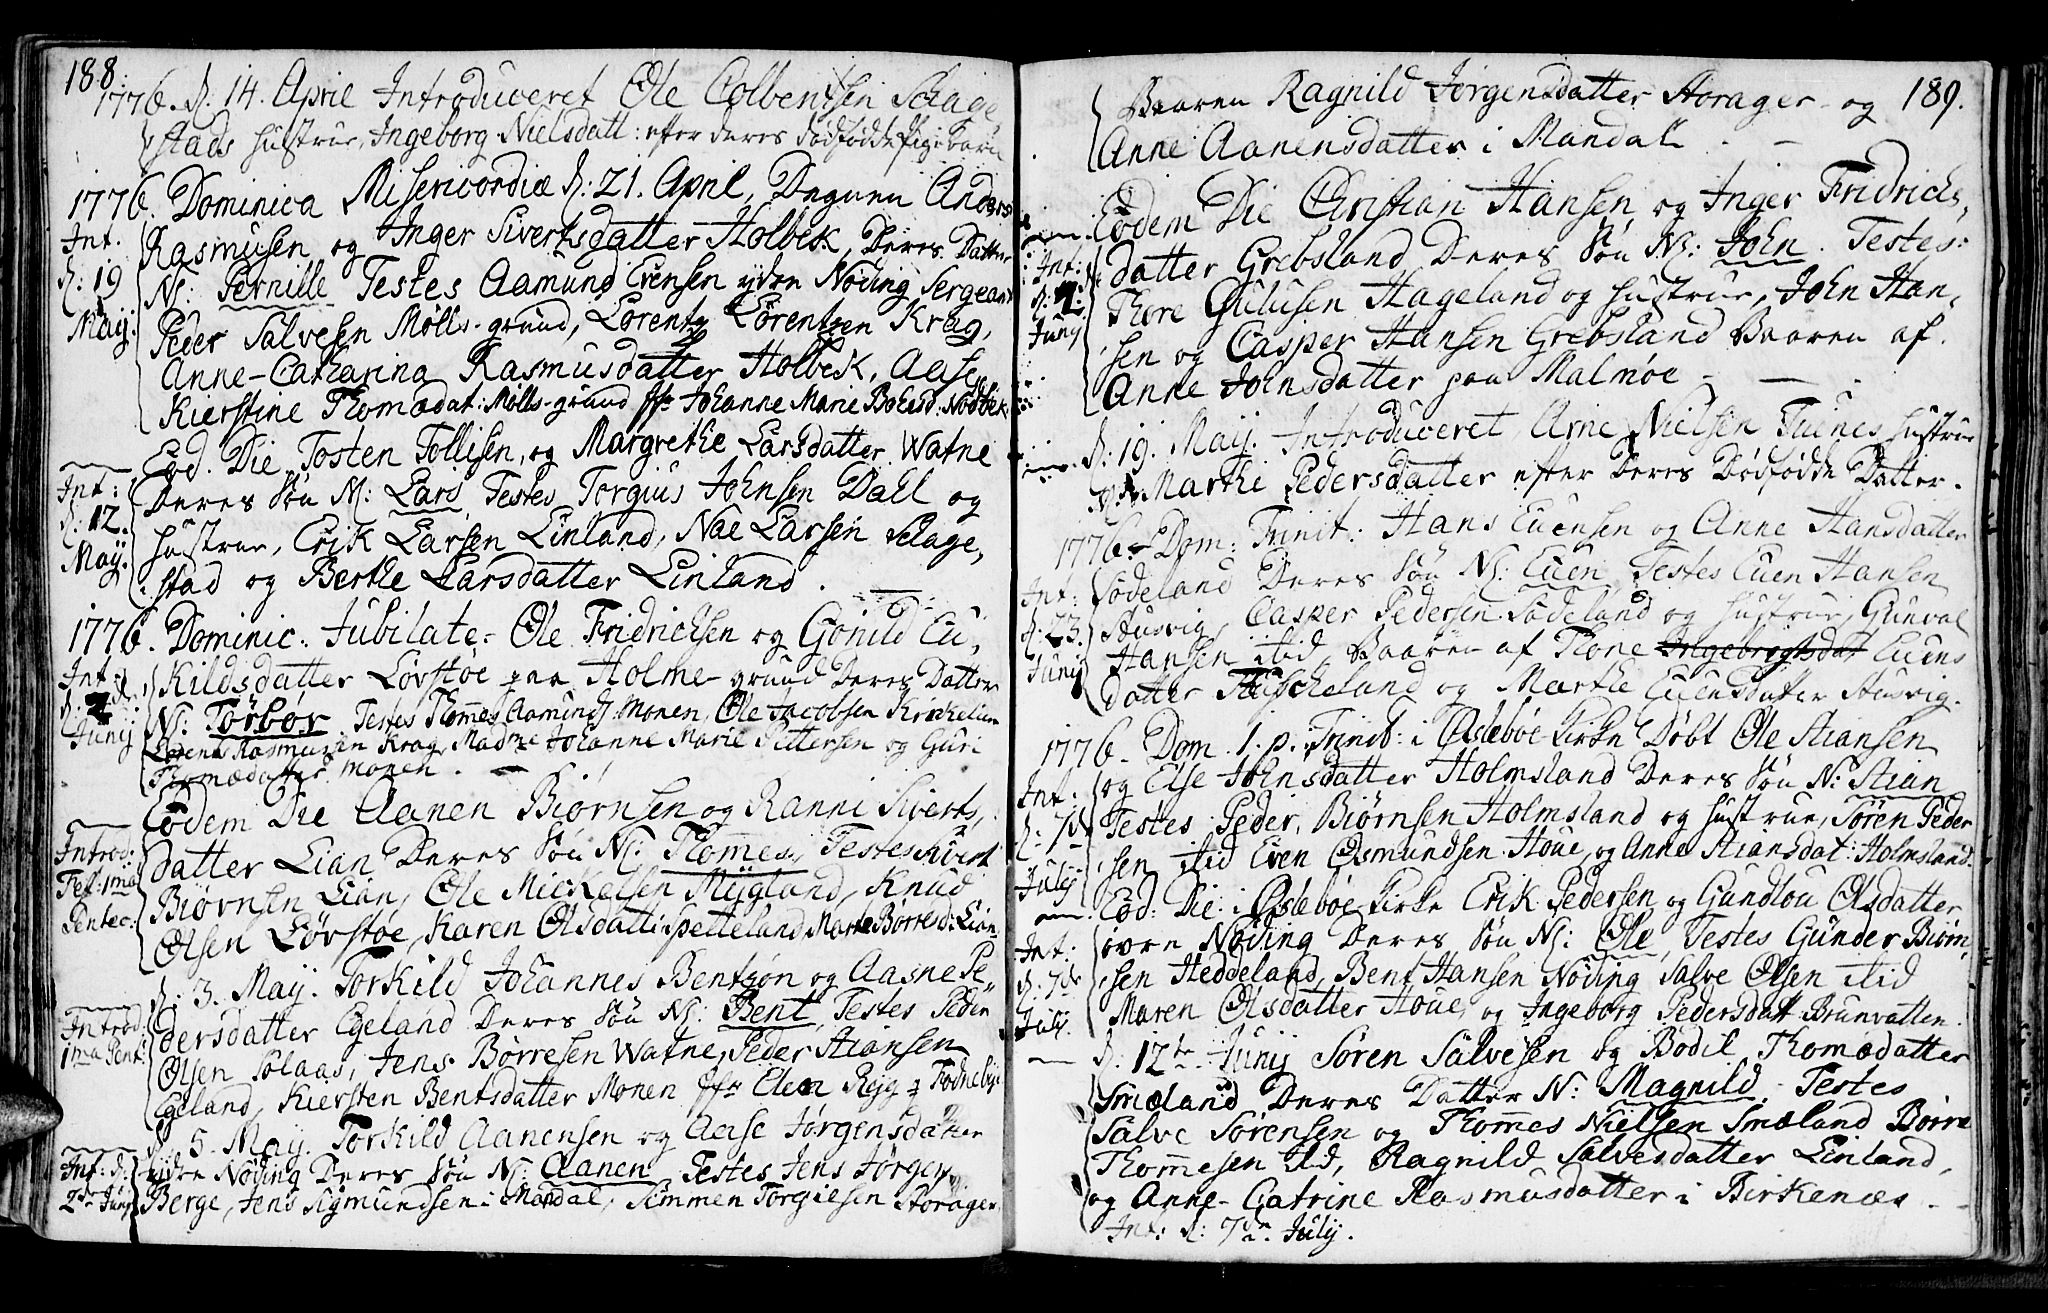 188.
1776. d: 14. April Introduceret Ole Colbentsen Schage
stads hustrue, Ingeborg Nielsdatt: efter deres dødfødde Pige Barn
1776. Dominica Misericordiæ d: 21. April, Degnen Anders
Int.
Rasmusen og Inger Sivertsdatter Holbek, Deres Datter
d: 19
N: Pernille Testes Aamund Evensen ydre Nøding Sergeant
Maij:
Peder Salvesen Molls-grund, Lorentz Lorentzen Krag,
Anne-Catharina Rasmusdatter Holbek, Aase
Kierstine Thomædat: Molls-grund Johanne Marie Nodbek
Eod. Die Tosten Tollisen, og Margrethe Larsdatter Watne
Int:
Deres Søn N: Lars Testes Torgius Johnsen Dahl og
d: 12.
hustrue, Erik Larsen Linland, Nae Larsen Schage,
Maij.
stad og Berthe Larsdatter Linland.
1776. Dominic: Jubilate- Ole Fridrichsen og Gønild Eu,
Int. d.
Kildsdatter Løvstøe paa Holme-grund Deres Datter
d. 2
N: Tørbør Testes Thommes Aamunds: Monen, Ole Jacobsen
Junij
Lorents Rasmusen Krag, Madme Johanne Marie Pettersen og Guri
Thomædatter Monen.
Eodem Die Aanen Biørnsen og Ranni Siverts,
Introd:
datter Lian Deres Søn N: Thomes, Testes Sivert
Fer: 1ma
Biørnsen Lian, Ole Mickelsen Mygland, Knud
Pentec:
Olsen Løvstøe, Karen Olsdatt: Spetteland, Marte Børresd: Lian
d. 3. Maij. Torkild Johannes Bentzøn og Aasne Pe,
Introd.
dersdatter Egeland Deres Søn N: Bent, Testes Peder
1ma Pent:
Olsen Solaas, Jens Børresen Watne, Peder Stiansen
Egeland, Kiersten Bentsdatter Monen Elen
d. 5. Maij. Torkild Aanensen og Aase Jørgensdatter
Int: d:
ydre Nøding Deres Søn N: Aanen Testes Jens Jørgens.
2de Junij
Berge, Jens Sigmundsen i Mandal, Simmen Torgiesen Storager
189.
Baaren Ragnild Jørgensdatter Storager og
Anne Aanensdatter i Mandal
Eodem Die Christian Hansen og Inger Fridrichs,
Int:
datter Grebsland Deres Søn N: John. Testes:
d: 2:
Thore Gulusen Hageland og hustrue, John Han,
Junij
sen og Casper Hansen Grebsland Baaren af
Anne Johnsdatter paa Malmøe
d: 19. Maij. Introduceret Arne Nielsen Tuenes hustrue
Marthe Pedersdatter efter Deres Dødfødde Datter.
1776- Dom: Trinit: Hans Euensen og Anne Hansdatter
Int:
Sodeland Deres Søn N: Euen Testes Euen Hansen
d: 23.
Husvig, Casper Pedersen Sodeland og hustrue, Gunval
Junij
Hansen ibid, Baaren af Thone Ingebrogtsdat Euens
datter og Marthe Euensdatter Husvig.
1776- Dom. 1. p. Trinit: i Øslebøe Kirke Døbt Ole Stiansen
Int:
og Else Johnsdatter Holmsland Deres Søn N: Stian
d: 7de
Testes Peder Biørnsen Holmsland og hustrue, Søren Peder
Julij
sen ibid Even Osmundsen Houe, og Anne Stiansdat: Holmsland.
Eod: Die: i Øslebøe Kirke Erik Pedersen og Gundlou Olsdatter
Int:
øvre Nøding Deres Søn N: Ole, Testes Gunder Biørn,
d: 7de
sen Heddeland, Bent Hansen Nøding Salve Olsen ibid
Julij.
Maren Olsdatter Houe, og Ingeborg Pedersdatt Brunvatten.
d. 12te Junij Søren Salvesen og Bodil Thomædatter
Smæland Deres Datter N: Magnild. Testes
Salve Sørensen og Thommes Nielsen Smæland Børre
Thommesen ibid, Ragnild Salvesdatter Linland,
og Anne-Catrine Rasmusdatter i Birkenæs
Int: d: 7de Julij.